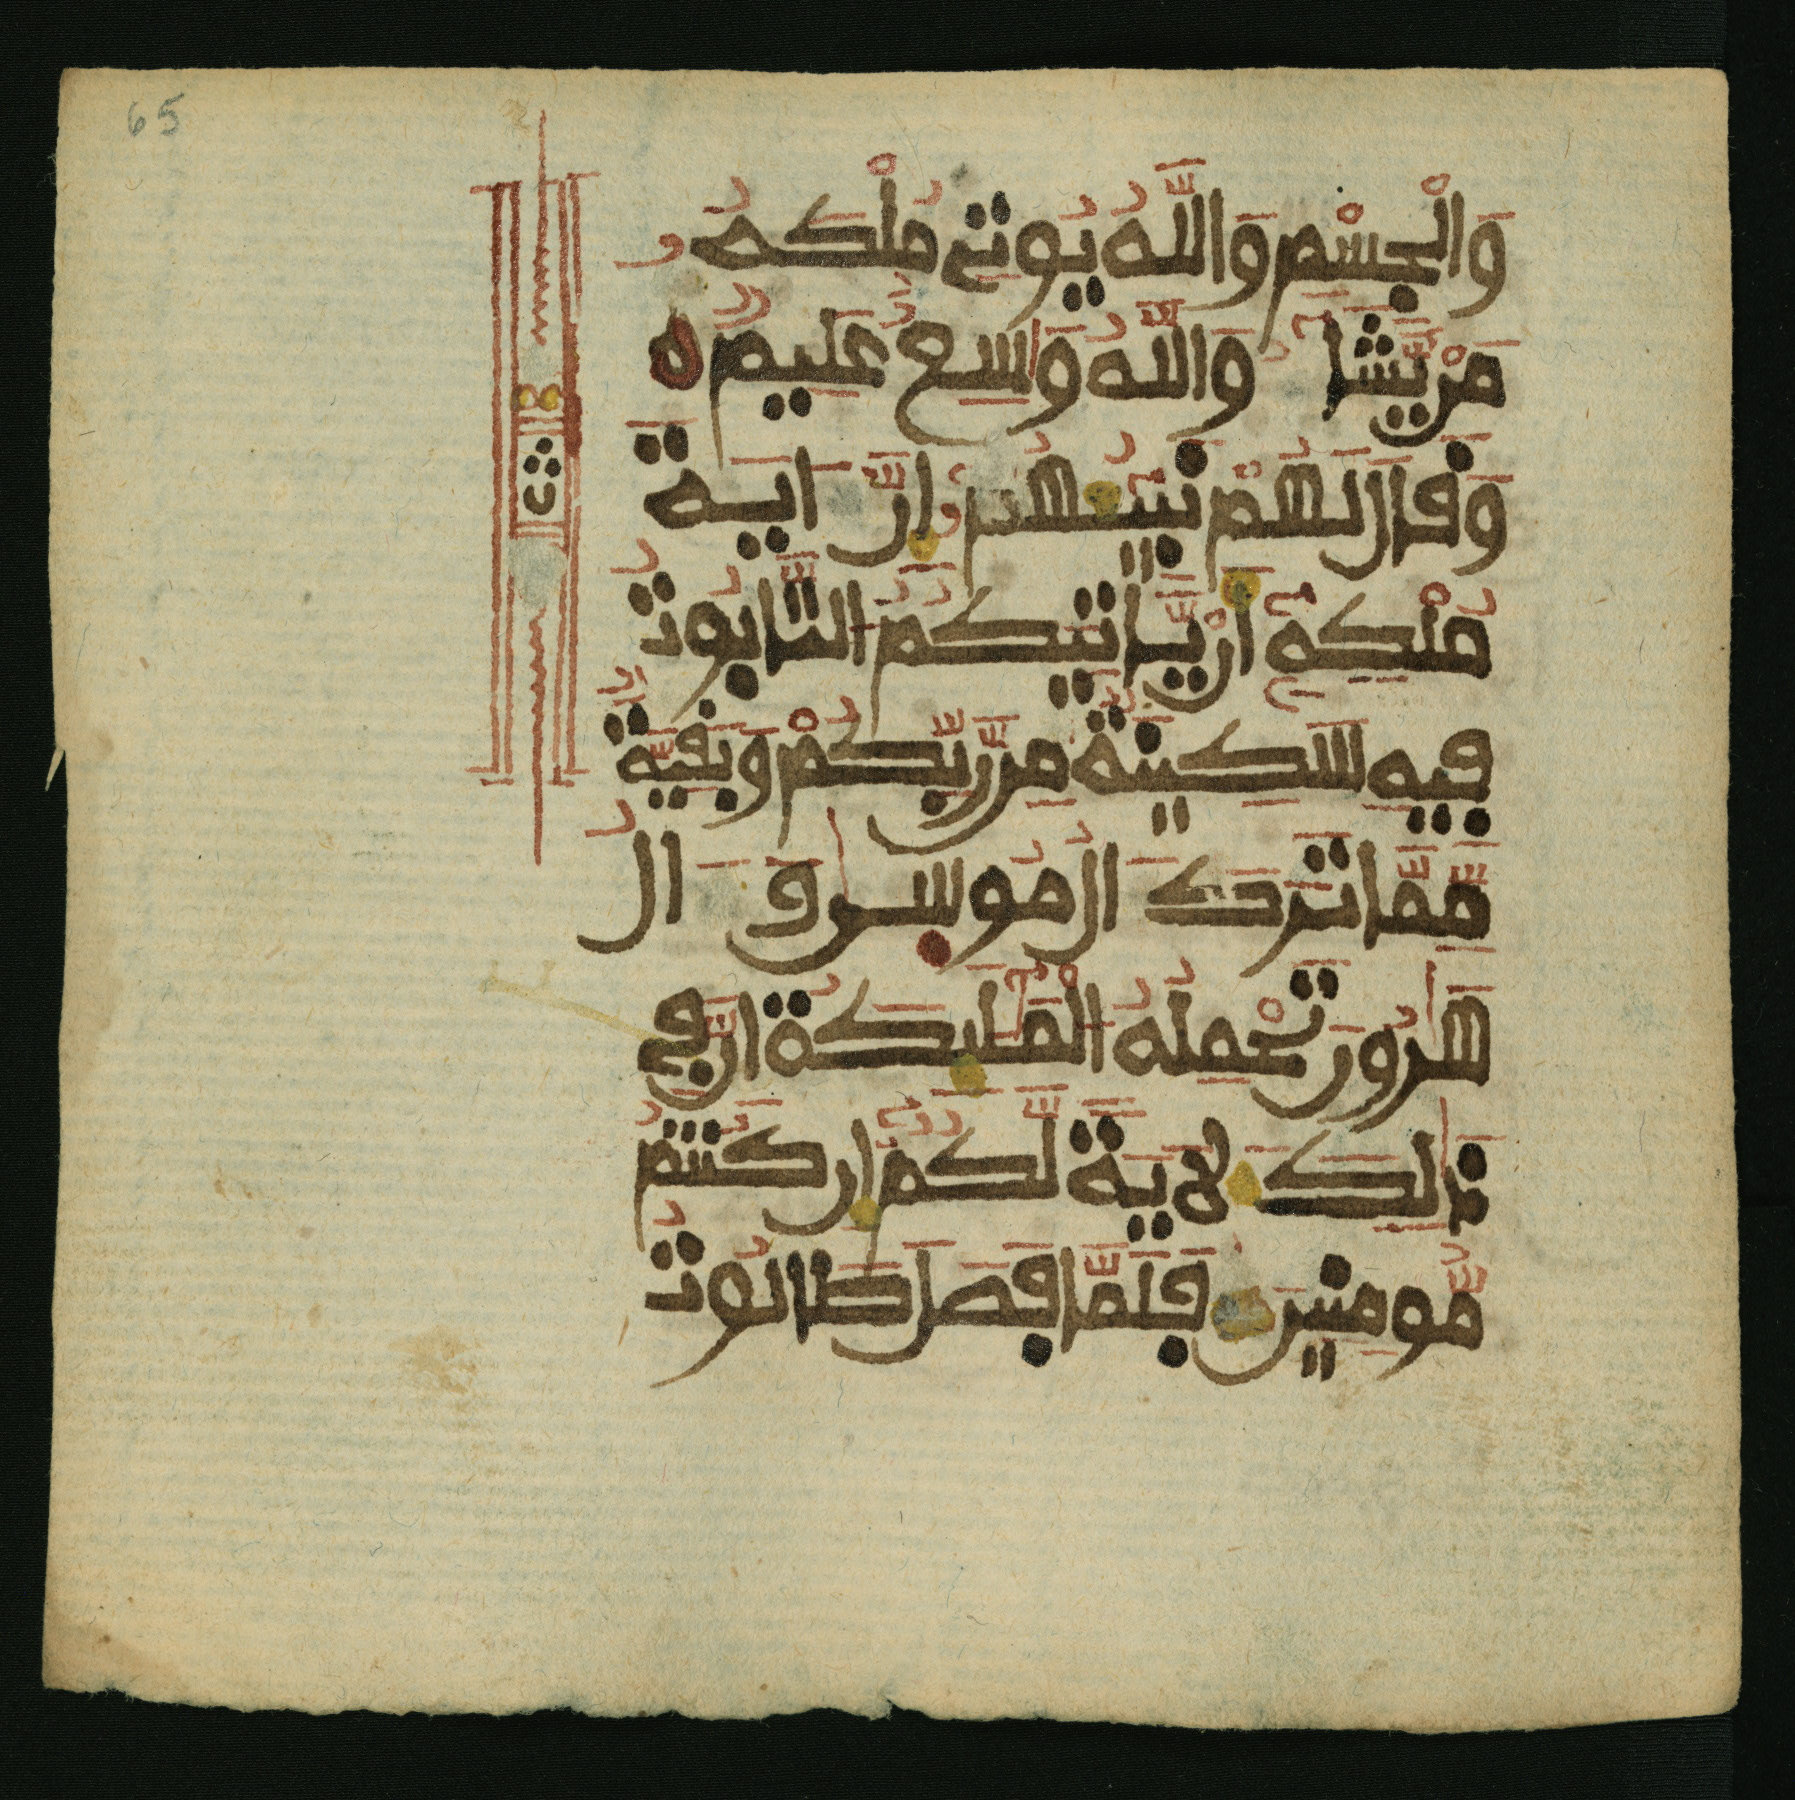 65
وَالْجِسْمِ وَاللَّهُ يُوتِي مُلْكَهُۥ
مَنْ يَّشَا وَاللَّهُ وَاسِعٌ عَلِيمٌ ه
وَقَالَ لَهُمْ نَبِيُّهُمُۥ إِنَّ ايَةَ
مُلْكِهِ أَنْ يَّاتِيَكُمُ التَّابُوتُ
فِيهِ سَكِينَةٌ مِّن رَّبِّكُمْ وَبَقِيَّةٌ
مِّمَّا تَرَكَ الُ مُوسٜى وَ الُ
هَٰرُونَ تَحْمِلُهُ الْمَلَٰٓئِكَةُ إِنَّ فِي
ذَٰلِكَ لَأيَةً لَّكُمُ إِن كُنتُم
مُّومِنِينَ فَلَمَّا فَصَلَ طَالُوتُ
ث